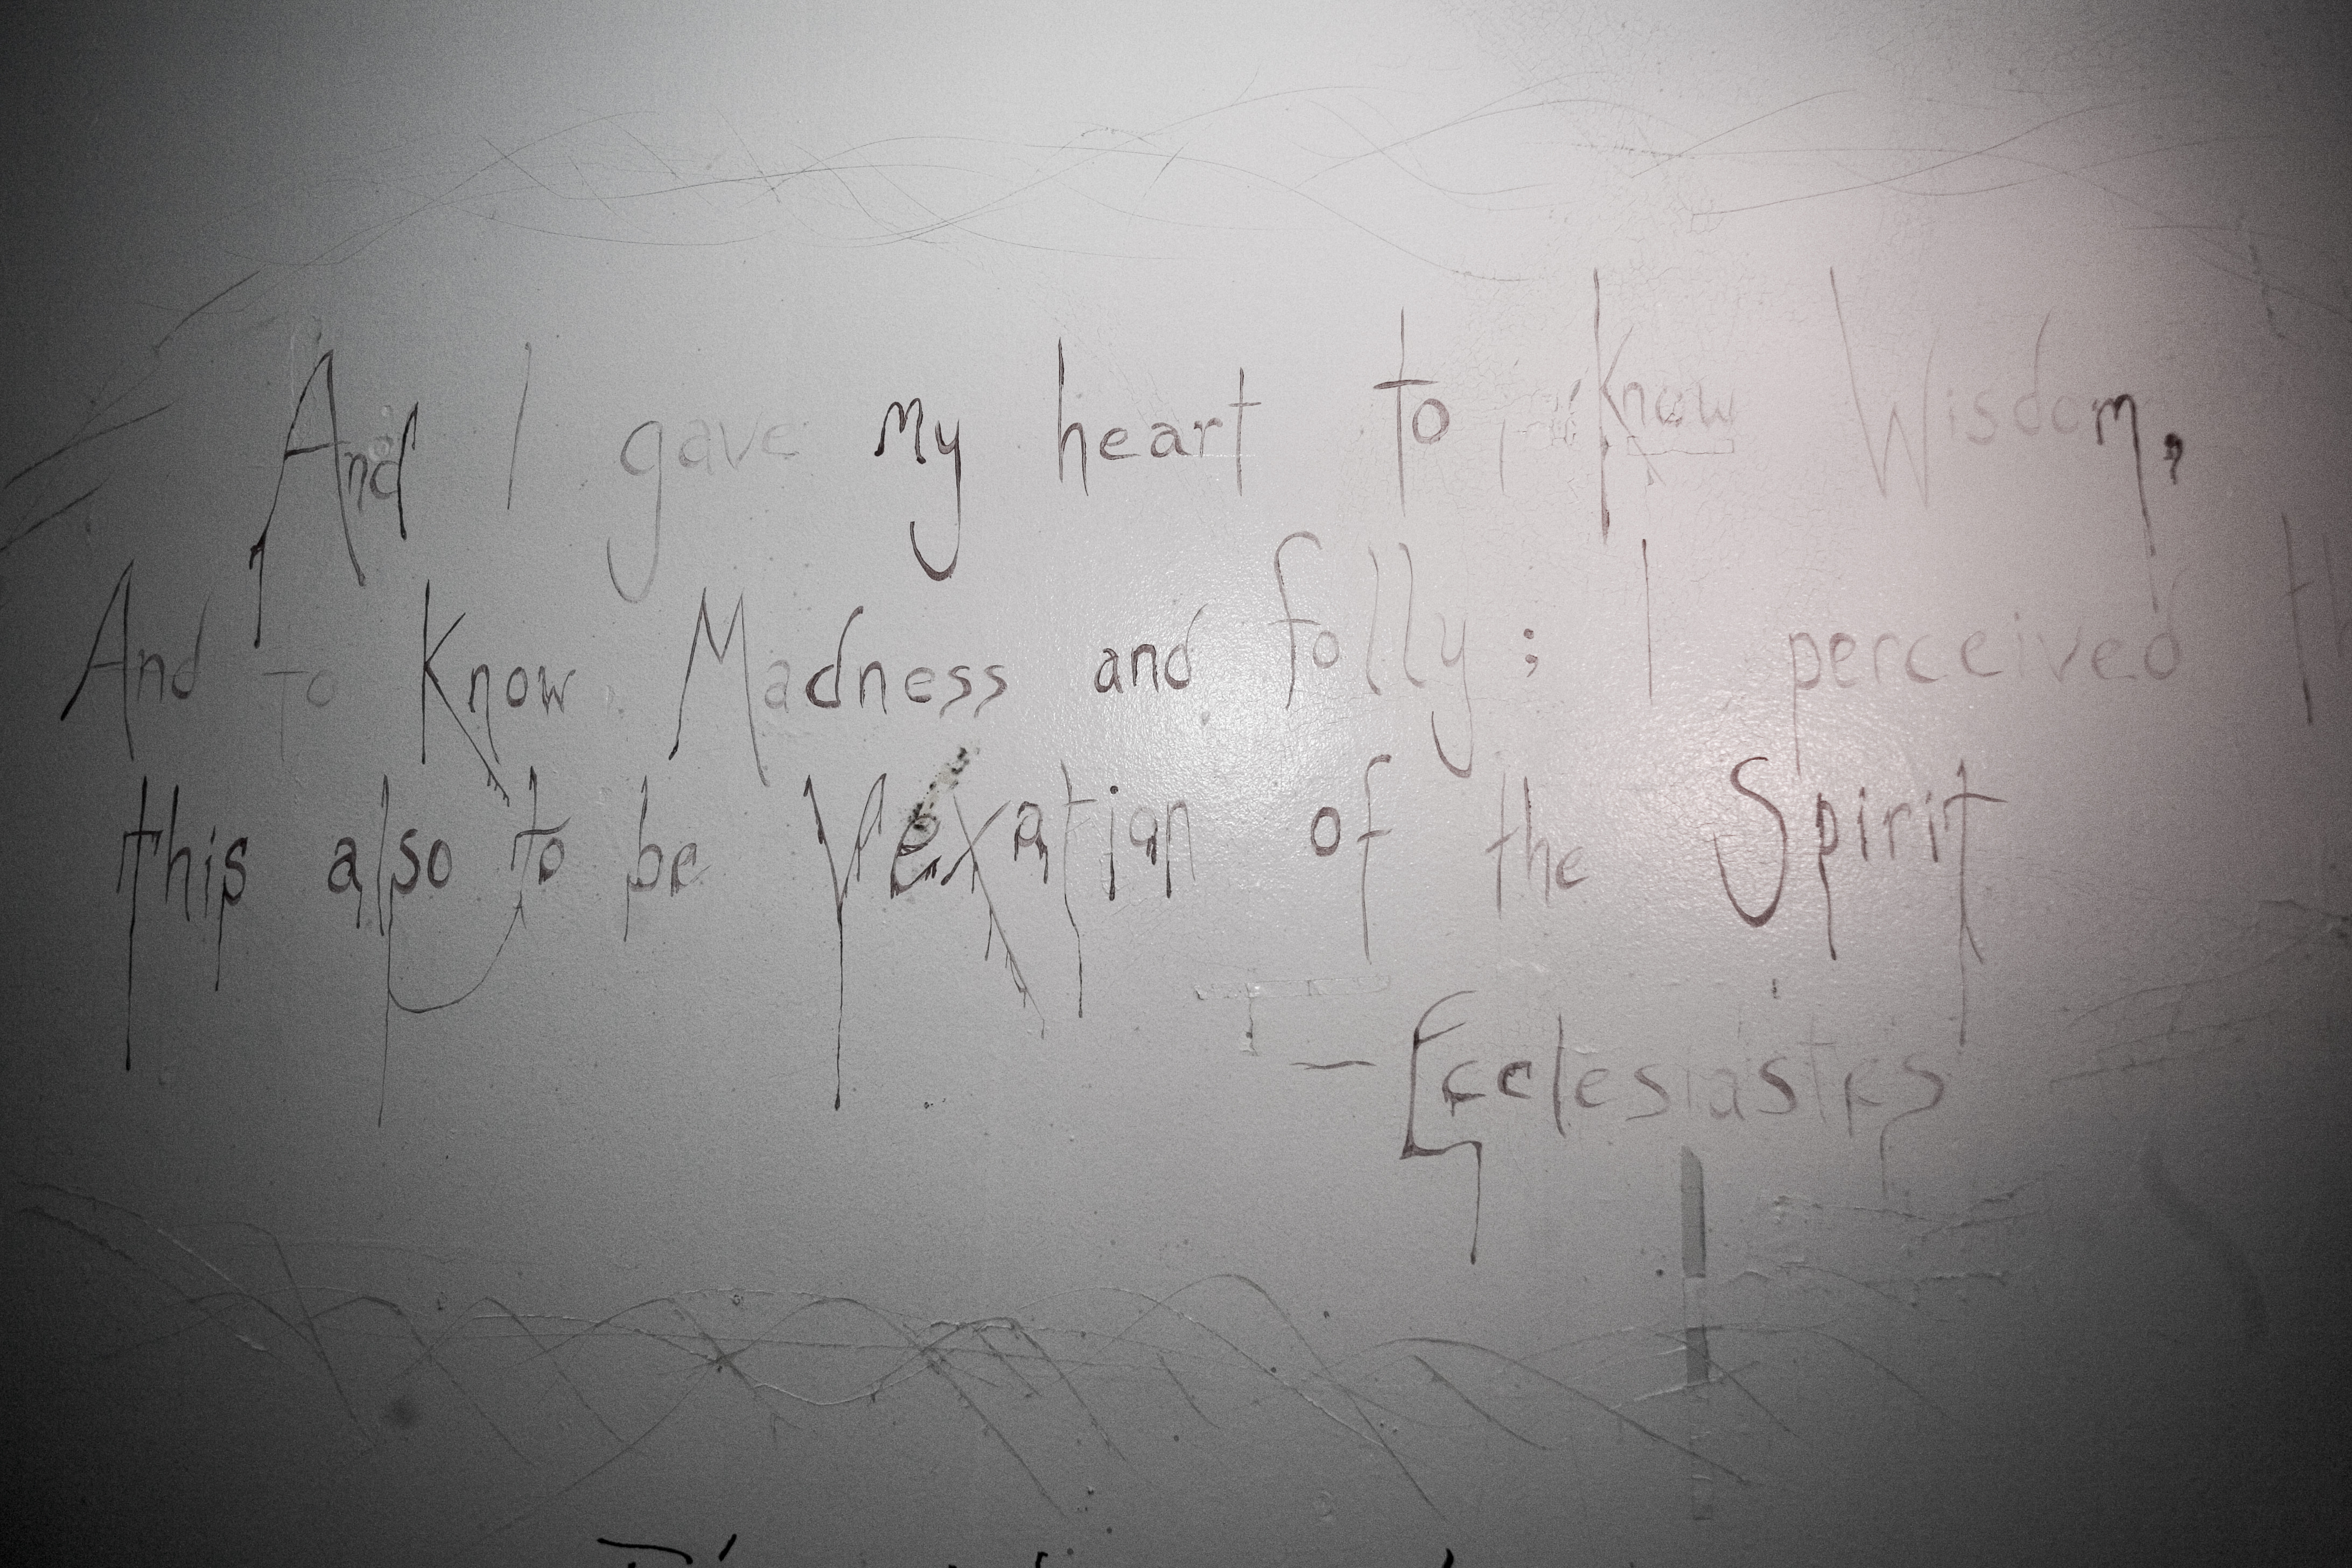 And I gave my heart to Know Wisdom,
And To Know Madness and folly; I perceived
this also to be Vexation of the Spirit
— Ecclesiastes